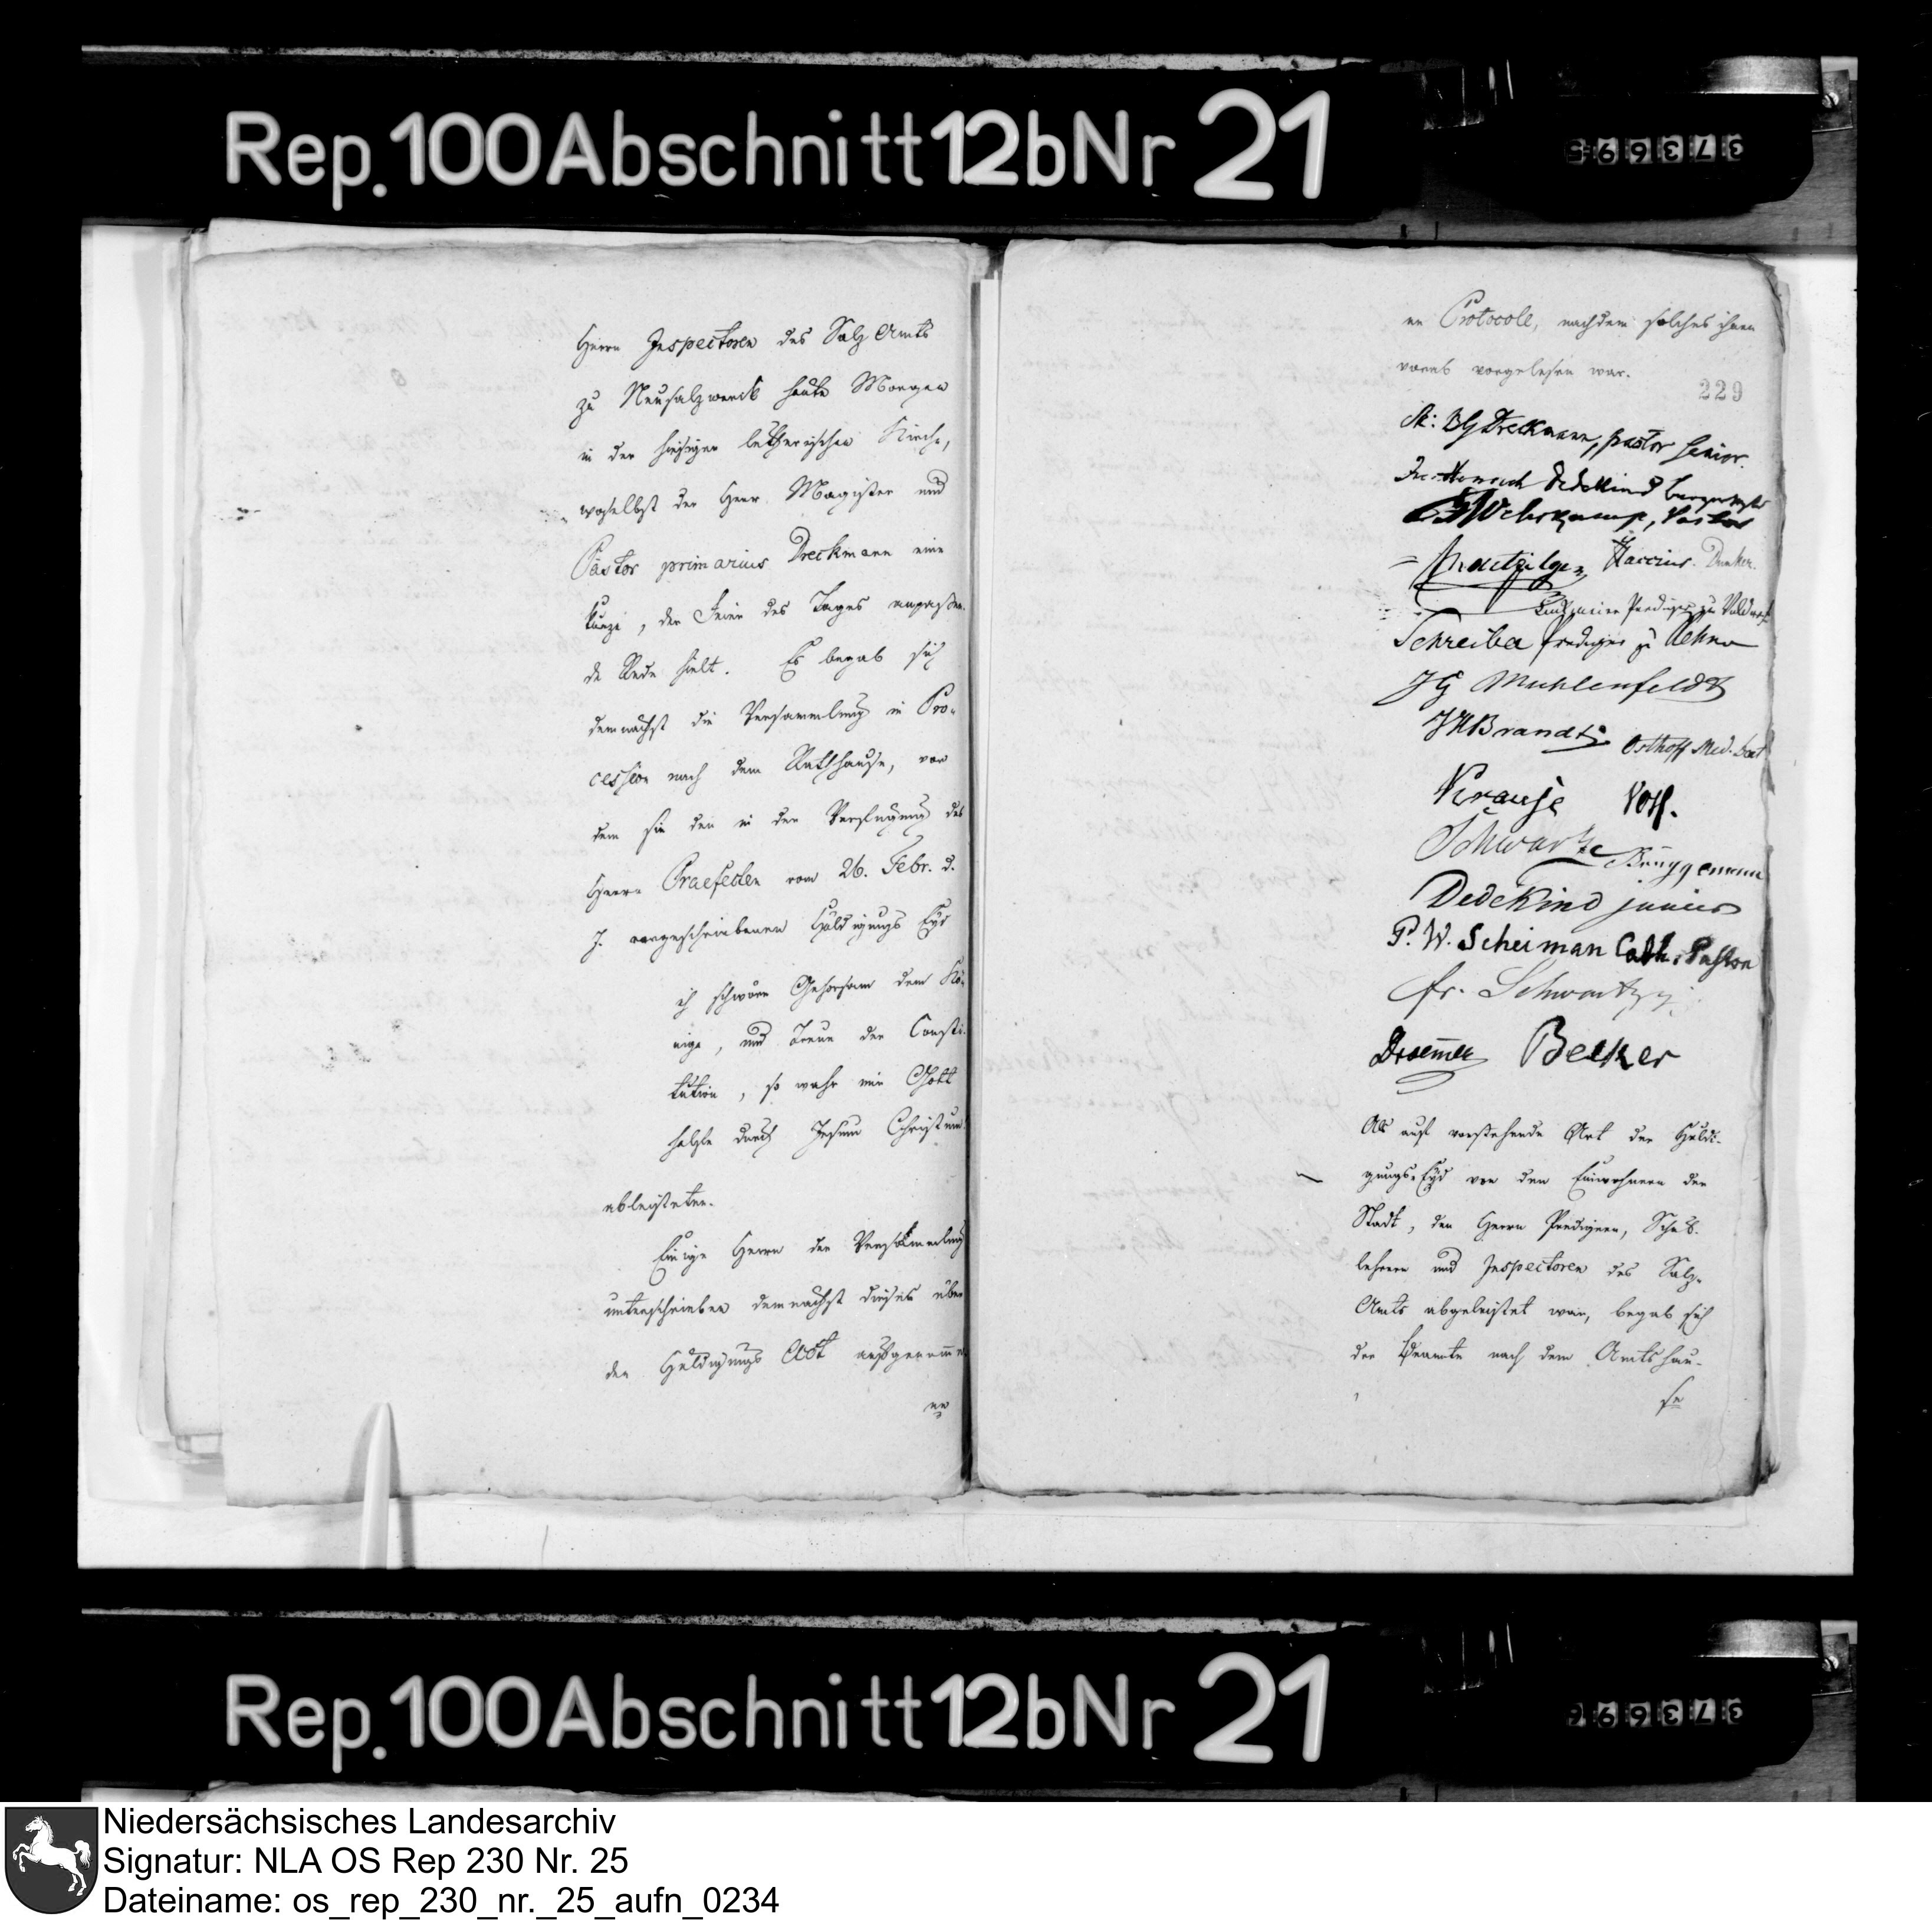 Rep. 100 Abschnitt 12b Nr 21
373695
Herrn Inspectoren des Salz Amts
zu Neusalzwerck heute Morgen
in der hiesigen lutherischen Kirche,
woselbst der Herr Magister und
Pastor primarius Dreckmann eine
kurze, der Feier des Tages anpaßen-
de Rede hielt. Es begab sich
demnächst die Versammlung in Pro-
cession nach dem Rathhause, vor
dem sie den in der Verfügung des
Herrn Praefecten vom 26. Febr. d.
J. vorgeschriebenen Huldigungs Eyd
ich schwöre Gehorsam dem Kö-
nige, und Treue der Consti-
tution, so wahr mir Gott
helfe durch Jesum Christum
ableisteten.
Einige Herrn der Versammlung
unterschrieben demnächst dieses über
den Huldigungs Act aufgenomme
ne
ne Protocoll, nachdem solches ihnen
vorab vorgelesen war.
229
M: BG Dreckmann, pastor senior.
Henrich Dedekind burgermeister
Wehrkamp, Pastor
Haccius. Dunker.
Prediger zu Valdorf
Schreiber Prediger zu Rehme
JG Muhlenfeldt
JHBrandt Osthoff Med. Doct
Krause Voß.
Schwartze Brüggemann
Dedekind junior
P. W. Scheiman Cath. Pastor
fr. Schwartze
Droemer Becker
Als auf vorstehende Art der Huldi-
gungs-Eyd von den Einwohnern der
Stadt, den Herrn Predigern, Schul-
lehrern und Inspectoren des Salz-
Amts abgeleistet war, begab sich
der Beamte nach dem Amtshau-
se
Rep. 100 Abschnitt 12b Nr 21
373696
Niedersächsisches Landesarchiv
Signatur: NLA OS Rep 230 Nr. 25
Dateiname: os_rep_230_nr._25_aufn_0234